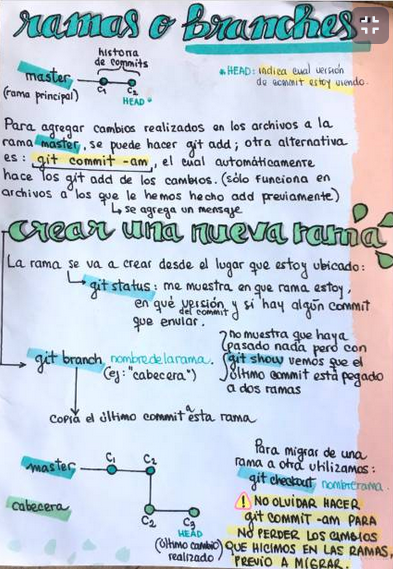 ramas o branches
historia
de commits
master
(rama principal)
C1
C2
HEAD
* HEAD: indica cual versión
de commit estoy viendo.
Para agregar cambios realizados en los archivos a la
rama master, se puede hacer git add; otra alternativa
es: git commit -am, el cual automáticamente
hace los git add de los cambios. (sólo funciona en
archivos a los que le hemos hecho add previamente)
se agrega un mensaje
Crear una nueva rama
La rama se va a crear desde el lugar que estoy ubicado:
git status: me muestra en que rama estoy,
en qué versión y si hay algún commit
del commit
que enviar.
git branch nombredelarama.
(ej: "cabecera")
no muestra que haya
pasado nada pero con
git show vemos que el
último commit está pegado
a dos ramas
copia el último commit a esta rama
master
C1
C2
cabecera
C2
C3
HEAD
(último cambio)
realizado
Para migrar de una
rama a otra utilizamos:
git checkout nombrerama.
! NO OLVIDAR HACER
git COMMIT -AM PARA
NO PERDER LOS CAMBIOS
QUE HICIMOS EN LAS RAMAS,
PREVIO A MIGRAR.